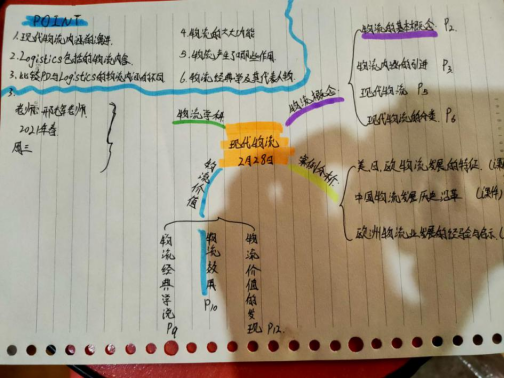 POINT
1.现代物流内涵的演进.
2.Logistics包括的物流内容.
3.比较PD与Logistics的物流内涵的
4.物流的七大功能
5.物流产生了哪些作用.
6.物流经典学及其代表人物.
3.
老师:
2021年春
周三
物流学科
物流概念
现代物流
2月28日
物流价值
案例分析
物流的基本概念 P2
物流内涵的引进 P3
现代物流 P5
现代物流的分类 P6
美、日、欧物流发展的特征.
中国物流发展历史沿革
欧洲物流业发展的经验与启示
物流经典学说 P9
物流效用 P10
物流价值的发现 P12